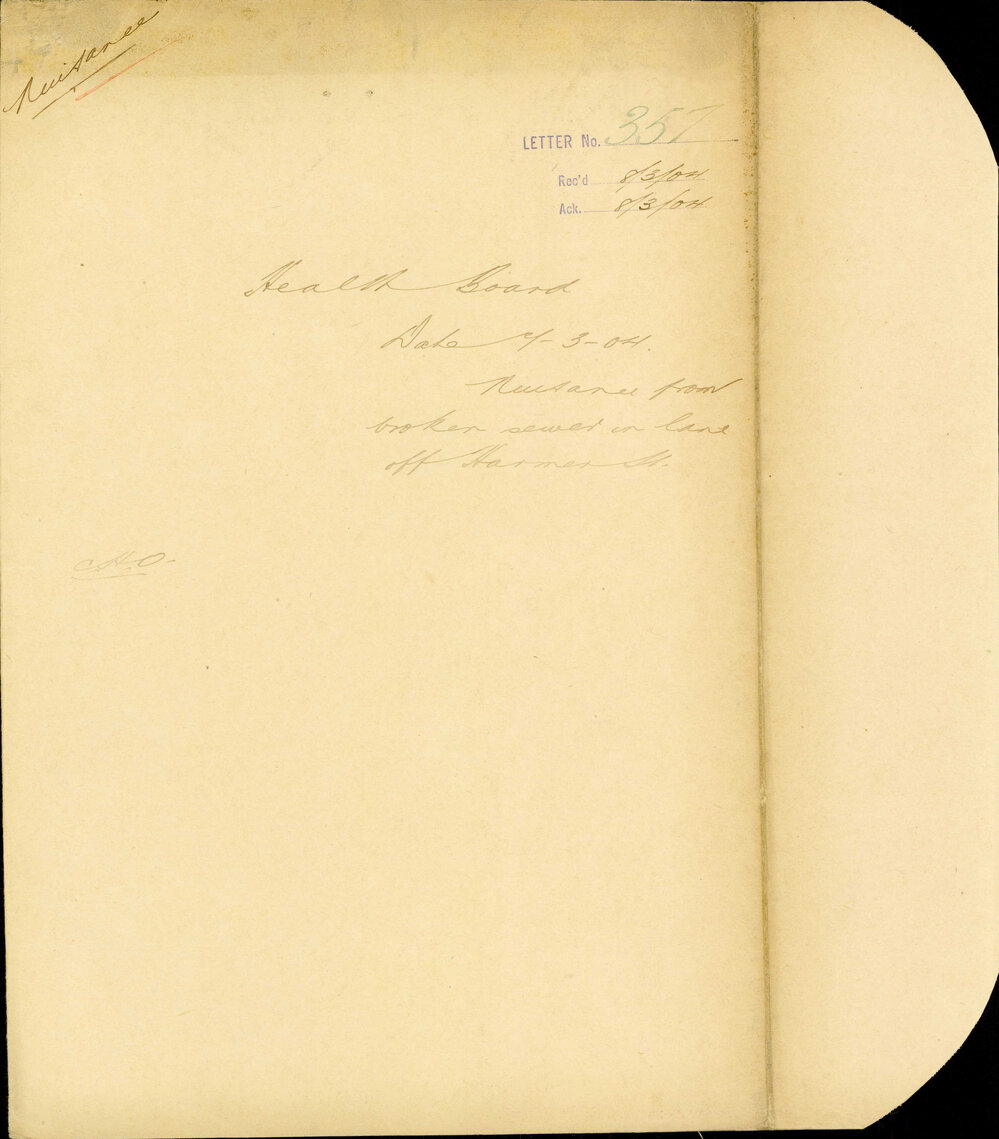 Nuisance
LETTER No. 357
Rec'd 8/3/04
Ack. 8/3/04
Health Board
Date 7-3-04.
Nuisance from
broken sewer in lane
off Harmer St.